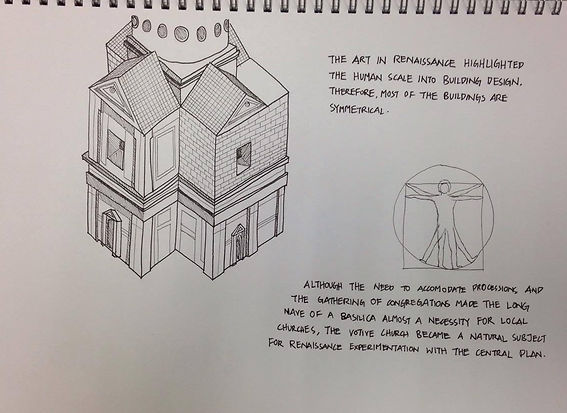 THE ART IN RENAISSANCE HIGHLIGHTED
THE HUMAN SCALE INTO BUILDING DESIGN.
THEREFORE, MOST OF THE BUILDINGS ARE
SYMMETRICAL.
ALTHOUGH THE NEED TO ACCOMODATE PROCESSIONS AND
THE GATHERING OF CONGREGATIONS MADE THE LONG
NAVE OF A BASILICA ALMOST A NECESSITY FOR LOCAL
CHURCHES, THE VOTIVE CHURCH BECAME A NATURAL SUBJECT
FOR RENAISSANCE EXPERIMENTATION WITH THE CENTRAL PLAN.